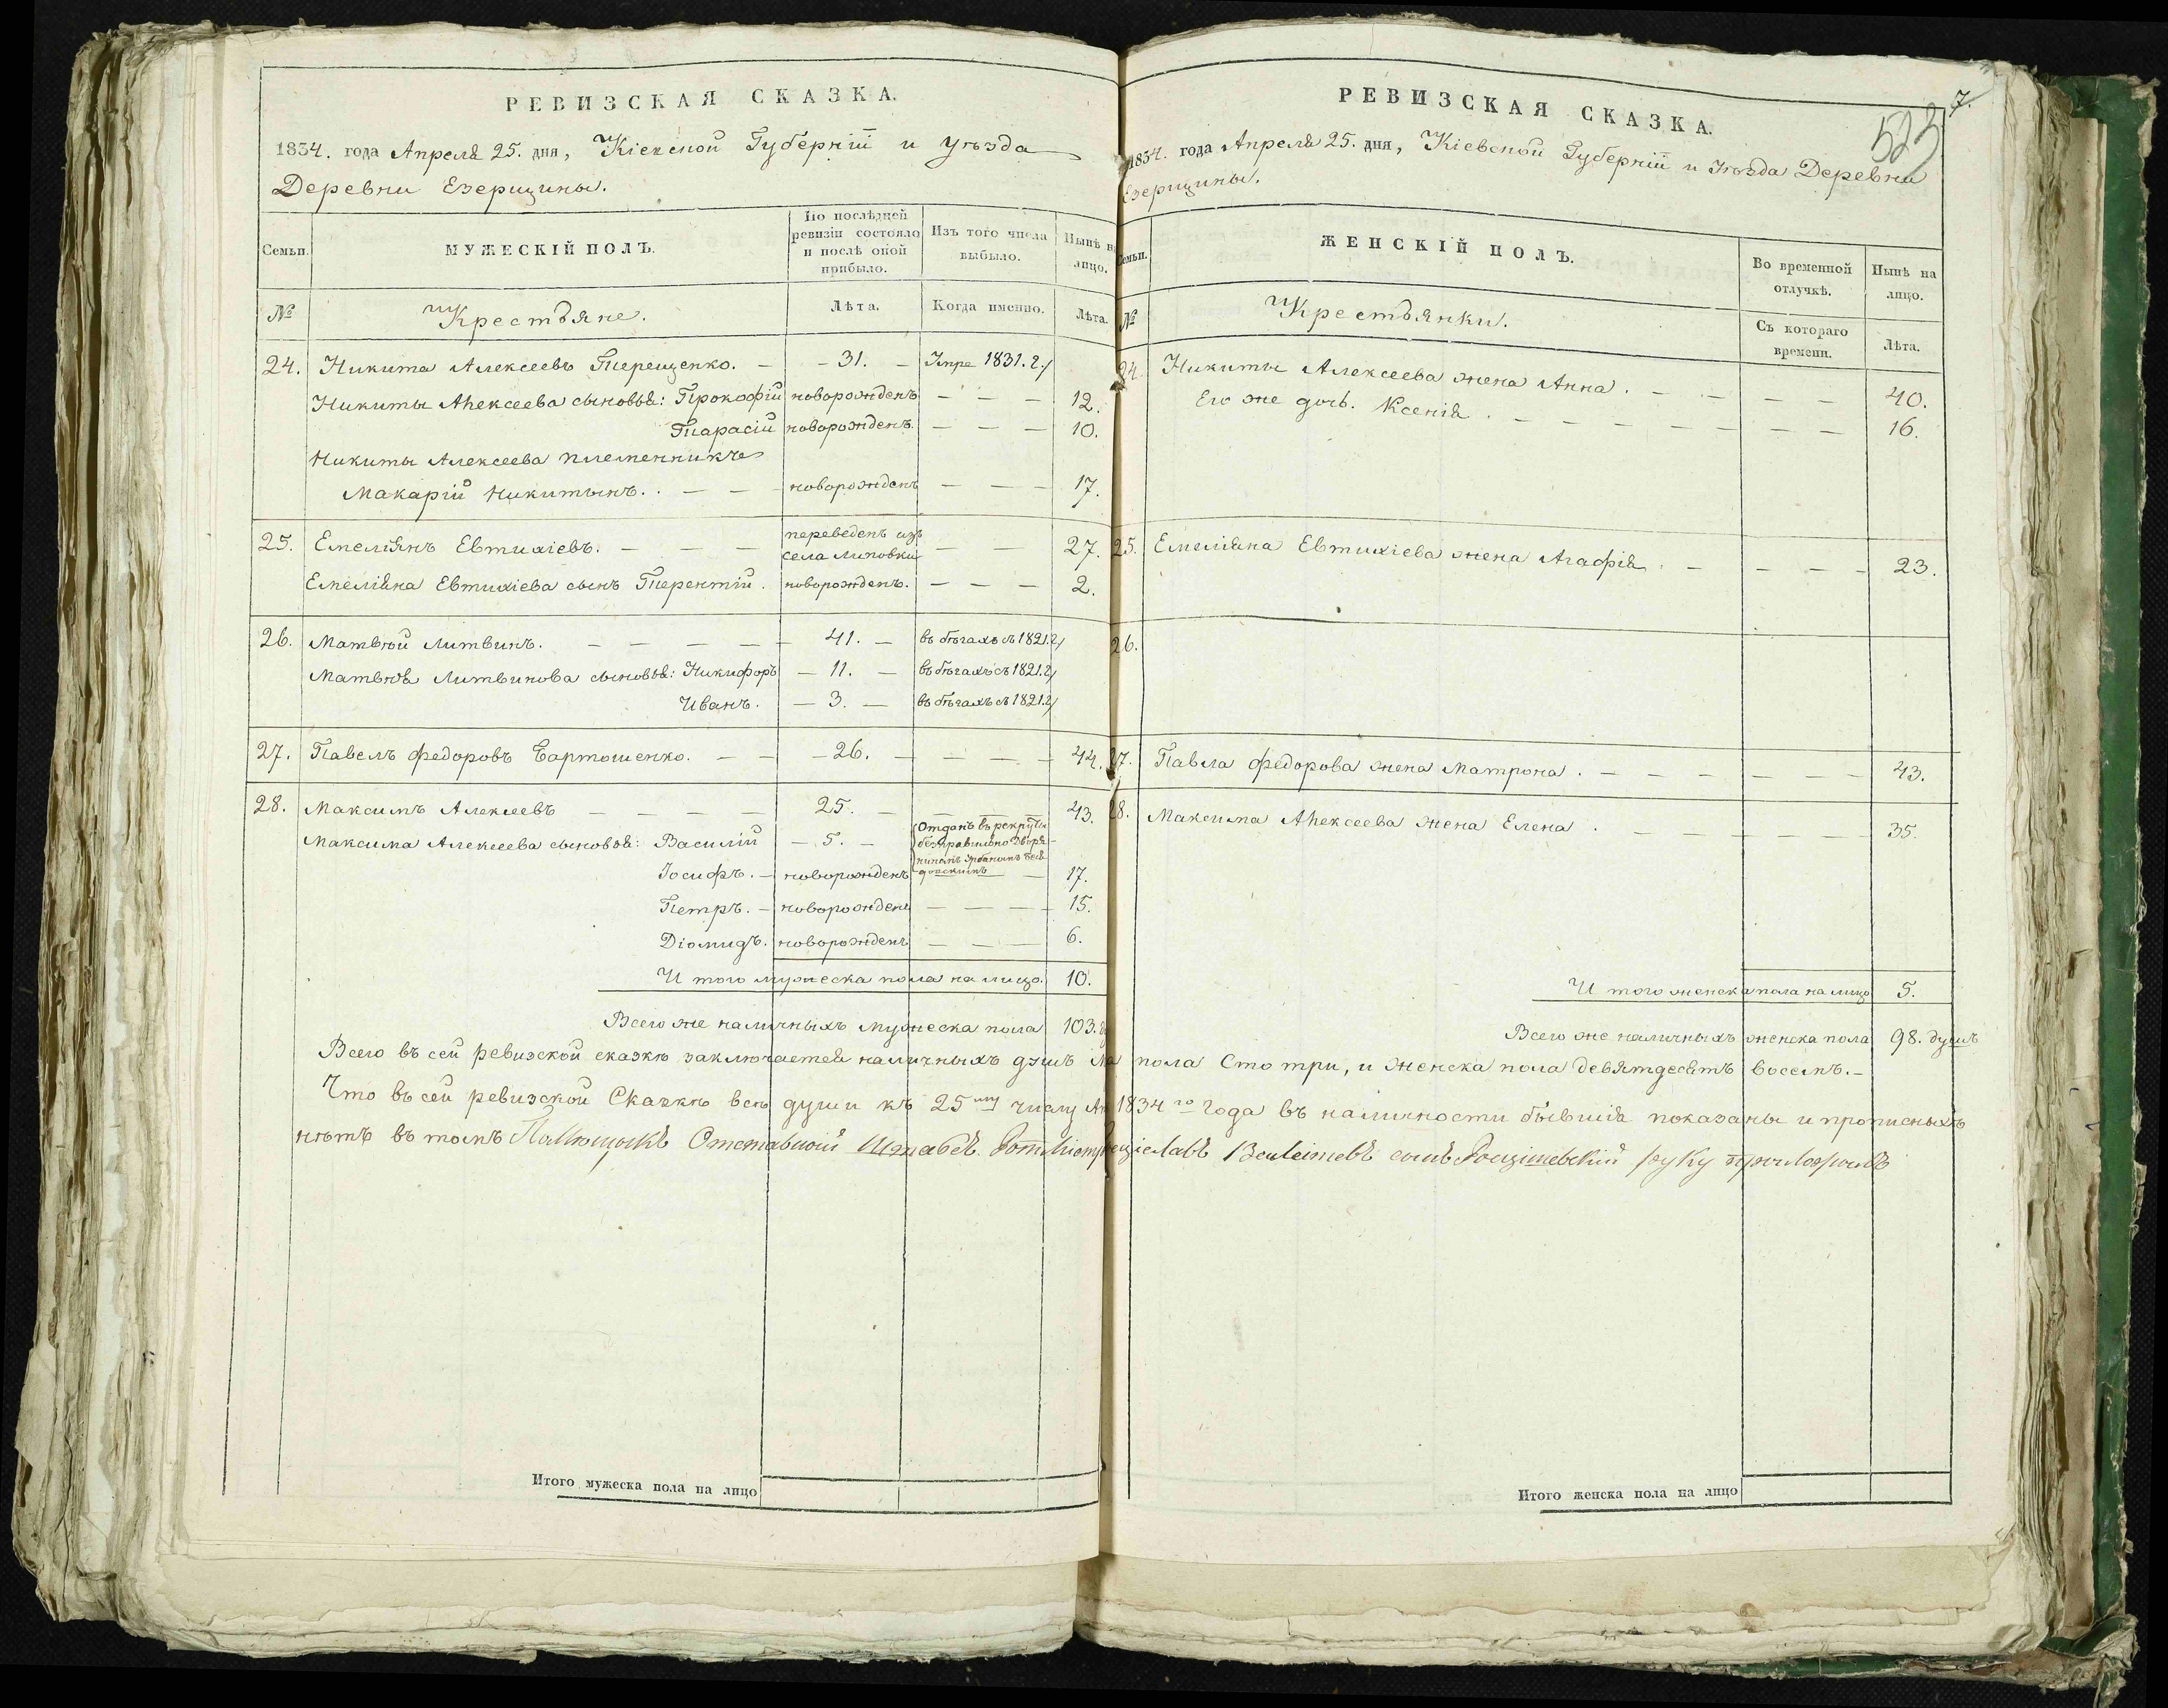 РЕВИЗСКАЯ СКАЗКА.
1834. года Апреля 25. дня, Кіевской Губерніи и уѣзда
Деревни Езерищины.
Семьи.
МУЖЕСКІЙ ПОЛЪ.
По послѣдней
ревизіи состояло
и послѣ оной
прибыло.
Изъ того числа
выбыло.
Нынѣ на
лицо.
№
Крестьяне.
Лѣта.
Когда именно.
Лѣта.
24. Никита Алексеевъ Терещенко. — 31. — Умре 1831. г./
Никиты Алексеева сыновья: Прокофій новорожденъ — — — 12.
Тарасій новорожденъ. — — — 10.
Никиты Алексеева племенникъ
Макарій Никитынъ. . — — новорожденъ — — — 17.
25. Емеліянъ Евтихіевъ. — — — переведенъ изъ
села Липовки — — 27.
Емеліяна Евтихіева сынъ Терентій. новорожденъ. — — — 2.
26. Матвѣй Литвинъ. — — — — 41. — въ бѣгахъ съ 1821. г/
Матвѣя Литвинова сыновья: Никифоръ — 11. — въ бѣгахъ съ 1821. г/
Иванъ. — 3. — въ бѣгахъ съ 1821. г/
27. Павелъ Федоровъ Бартошенко. — — 26. — — — — 44.
28. Максимъ Алексеевъ — — — — 25. — — 43.
Максима Алексеева сыновья: Василій — 5. — Отданъ въ рекруты
безправильно Дворя-
ниномъ
Іосифъ. — новорожденъ — 17.
Петръ. — новорожденъ — — — 15.
Діомидъ. новорожденъ — — — 6.
И того мужеска пола на лицо. 10.
Всего же наличныхъ мужеска пола 103.
РЕВИЗСКАЯ СКАЗКА.
7.
523
1834. года Апреля 25. дня, Кіевской Губерніи и Уѣзда Деревни
Езерищины.
Семьи.
ЖЕНСКІЙ ПОЛЪ.
Во временной
отлучкѣ.
Нынѣ на
лицо.
№
Крестьянки.
Съ котораго
времени.
Лѣта.
24. Никиты Алексеева жена Анна. — — — — 40.
Его же дочь. Ксенія. — — — — — — — 16.
25. Емеліяна Евтихіева жена Агафія. — — — — 23.
26.
27. Павла Федорова жена Матрона. — — — — — — 43.
28. Максима Алексеева жена Елена. — — — — — — 35.
И того женска пола на лицо 5.
Всего же наличныхъ женска пола 98. душъ
Всего въ сей ревизской сказкѣ заключается наличныхъ душъ пола Сто три, и Женска пола девятдесятъ восемъ. —
Что въ сей ревизской Сказкѣ всѣ души къ 25му числу 1834го Года въ наличности бывшія показаны и прописныхъ
нѣтъ въ томъ Помѣщикъ Отставной Штабсъ Ротмистръ сынъ руку приложилъ
Итого мужеска пола на лицо
Итого женска пола на лицо